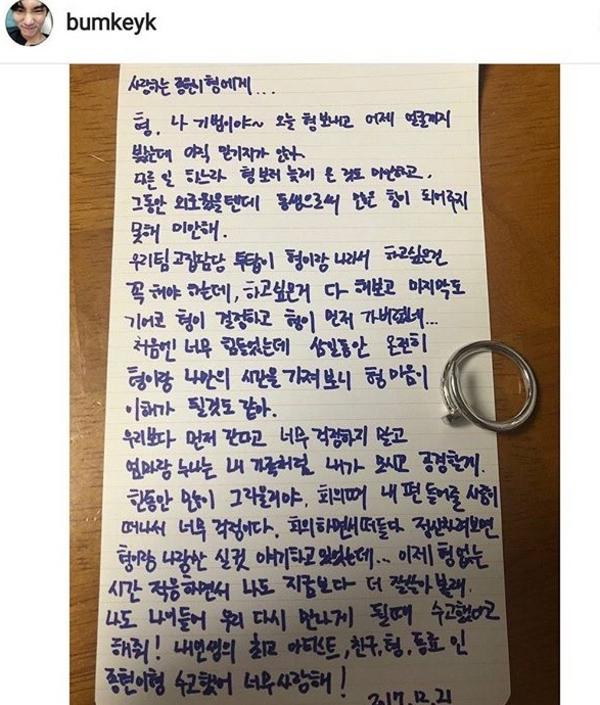 bumkeyk
사랑하는 종현이형에게...
형, 나 기범이야~ 오늘 형 보내고 어제 얼굴까지
봤는데 아직 믿기지가 않아.
다른 일 하느라 형 보러 늦게 온 것도 미안하고,
그동안 외로웠을텐데 동생으로써 많은 힘이 되어주지
못해 미안해.
우리팀 고집담당 투탑이 형이랑 나라서 하고싶은건
꼭 해야 하는데, 하고싶은거 다 해보고 마지막도
기어코 형이 결정하고 형이 먼저 가버렸네...
처음엔 너무 힘들었는데 삼일동안 온전히
형이랑 나만의 시간을 가져 보니 형 마음이
이해가 될것도 같아.
우리보다 먼저 간다고 너무 걱정하지 말고
엄마랑 누나는 내 가족처럼 내가 모시고 공경할게.
한동안 많이 그리울거야, 회의때 내 편 들어줄 사람이
떠나서 너무 걱정이다. 회의하면서 떠들다 정신차려보면
형이랑 나랑만 실컷 얘기하고 있었는데... 이제 형 없는
시간 적응하면서 나도 지금보다 더 잘살아 볼래.
나도 나이들어 우리 다시 만나게 될때 수고했다고
해줘! 내 인생의 최고 아티스트, 친구, 형, 동료 인
종현이형 수고했어 너무 사랑해!
2017.12.21